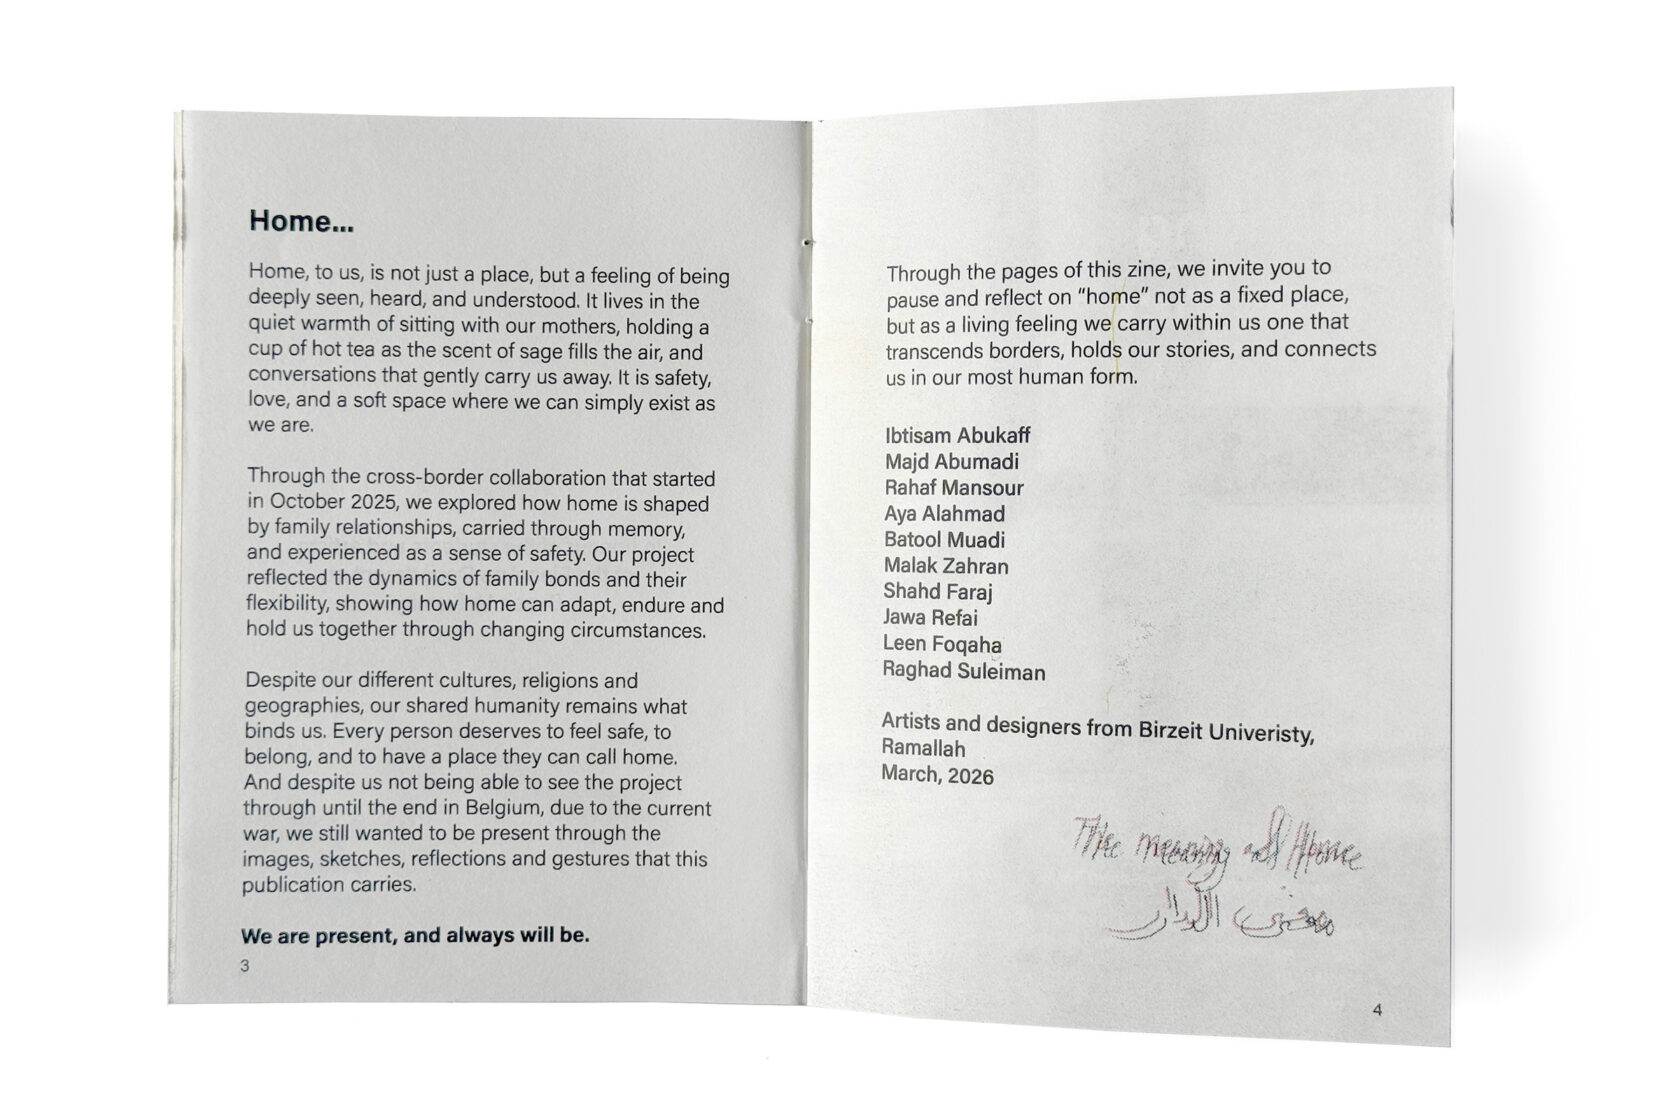 Home...
Home, to us, is not just a place, but a feeling of being
deeply seen, heard, and understood. It lives in the
quiet warmth of sitting with our mothers, holding a
cup of hot tea as the scent of sage fills the air, and
conversations that gently carry us away. It is safety,
love, and a soft space where we can simply exist as
we are.
Through the cross-border collaboration that started
in October 2025, we explored how home is shaped
by family relationships, carried through memory,
and experienced as a sense of safety. Our project
reflected the dynamics of family bonds and their
flexibility, showing how home can adapt, endure and
hold us together through changing circumstances.
Despite our different cultures, religions and
geographies, our shared humanity remains what
binds us. Every person deserves to feel safe, to
belong, and to have a place they can call home.
And despite us not being able to see the project
through until the end in Belgium, due to the current
war, we still wanted to be present through the
images, sketches, reflections and gestures that this
publication carries.
We are present, and always will be.
3
Through the pages of this zine, we invite you to
pause and reflect on “home” not as a fixed place,
but as a living feeling we carry within us one that
transcends borders, holds our stories, and connects
us in our most human form.
Ibtisam Abukaff
Majd Abumadi
Rahaf Mansour
Aya Alahmad
Batool Muadi
Malak Zahran
Shahd Faraj
Jawa Refai
Leen Foqaha
Raghad Suleiman
Artists and designers from Birzeit Univeristy,
Ramallah
March, 2026
The meaning of Home
معنى الدار
4